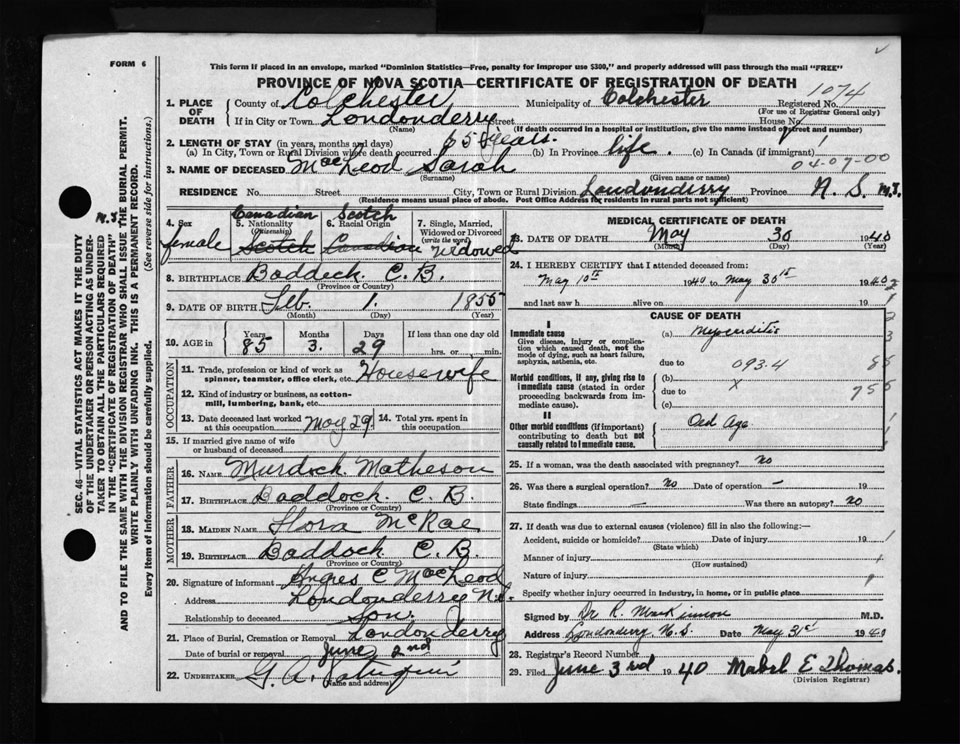 FORM 6
This form if placed in an envelope, marked "Dominion Statistics—Free, penalty for improper use $300," and properly addressed will pass through the mail "FREE"
PROVINCE OF NOVA SCOTIA—CERTIFICATE OF REGISTRATION OF DEATH
1074
1. PLACE OF DEATH
County of Colchester Municipality of Colchester Registered No.
(For use of Registrar General only)
If in City or Town Londonderry Street House No.
(Name) (If death occurred in a hospital or institution, give the name instead of street and number)
2. LENGTH OF STAY (in years, months and days)
(a) In City, Town or Rural Division where death occurred 65 years. (b) In Province life. (c) In Canada (if immigrant)
04-07-00
3. NAME OF DECEASED MacLeod Sarah
(Surname) (Given name or names)
RESIDENCE No. Street City, Town or Rural Division Londonderry Province N. S. M.T.
(Residence means usual place of abode. Post Office Address for residents in rural parts not sufficient)
4. Sex female
5. Nationality (Citizenship) Canadian Scotch
6. Racial Origin Scotch Canadian
7. Single, Married, Widowed or Divorced (write the word) Widowed
8. BIRTHPLACE Baddeck C. B.
(Province or Country)
9. DATE OF BIRTH Feb. 1. 1855
(Month) (Day) (Year)
10. AGE in Years 85 Months 3. Days 29 If less than one day old hrs. or min.
OCCUPATION
11. Trade, profession or kind of work as spinner, teamster, office clerk, etc. Housewife
12. Kind of industry or business, as cotton-mill, lumbering, bank, etc.
13. Date deceased last worked at this occupation May 29 14. Total yrs. spent in this occupation
15. If married give name of wife or husband of deceased
FATHER
16. NAME Murdoch Matheson
17. BIRTHPLACE Baddock C. B.
(Province or Country)
MOTHER
18. MAIDEN NAME Flora McRae
19. BIRTHPLACE Baddock C. B.
(Province or Country)
20. Signature of informant C MacLeod
Address Londonderry N.S.
Relationship to deceased Son.
21. Place of Burial, Cremation or Removal Londonderry
Date of burial or removal June 2nd
22. UNDERTAKER G. A.
(Name and address)
MEDICAL CERTIFICATE OF DEATH
23. DATE OF DEATH May 30 1940
(Month) (Day) (Year)
24. I HEREBY CERTIFY that I attended deceased from:
May 10th 1940 to May 30th 1940
and last saw h alive on 19
CAUSE OF DEATH
I
Immediate cause
Give disease, injury or complication which caused death, not the mode of dying, such as heart failure, asphyxia, asthenia, etc.
(a) Myocarditis
due to 093.4
Morbid conditions, if any, giving rise to immediate cause (stated in order proceeding backwards from immediate cause).
(b) x
due to
(c)
II
Other morbid conditions (if important) contributing to death but not causally related to immediate cause.
Old Age
25. If a woman, was the death associated with pregnancy? No
26. Was there a surgical operation? No Date of operation — 19
State findings — Was there an autopsy? No
27. If death was due to external causes (violence) fill in also the following:—
Accident, suicide or homicide? Date of injury 19
(State which)
Manner of injury
(How sustained)
Nature of injury
Specify whether injury occurred in industry, in home, or in public place
Signed by Dr R. MacKinnon M.D.
Address Londonderry N. S. Date May 31st 1940
28. Registrar's Record Number
29. Filed June 3rd 1940 Mabel E Thomas.
(Division Registrar)
M.T.
SEC. 46—VITAL STATISTICS ACT MAKES IT THE DUTY
OF THE UNDERTAKER OR PERSON ACTING AS UNDER-
TAKER TO OBTAIN ALL THE PARTICULARS REQUIRED
IN THE "CERTIFICATE OF REGISTRATION OF DEATH"
AND TO FILE THE SAME WITH THE DIVISION REGISTRAR WHO SHALL ISSUE THE BURIAL PERMIT.
WRITE PLAINLY WITH UNFADING INK. THIS IS A PERMANENT RECORD.
Every item of information should be carefully supplied. (See reverse side for instructions.)